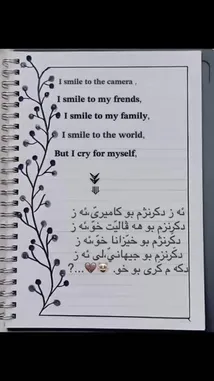 I smile to the camera ,
I smile to my frends,
I smile to my family,
I smile to the world,
But I cry for myself,
ئه ز دكرنژم بو كاميرێ،ئه ز
دكرنژم بو هه ڤالێت خۆ،ئه ز
دكرنژم بو خێزانا خۆ،ئه ز
دكرنژم بو جيهانێ،لێ ئه ز
دكه م گری بو خو. 💔...?